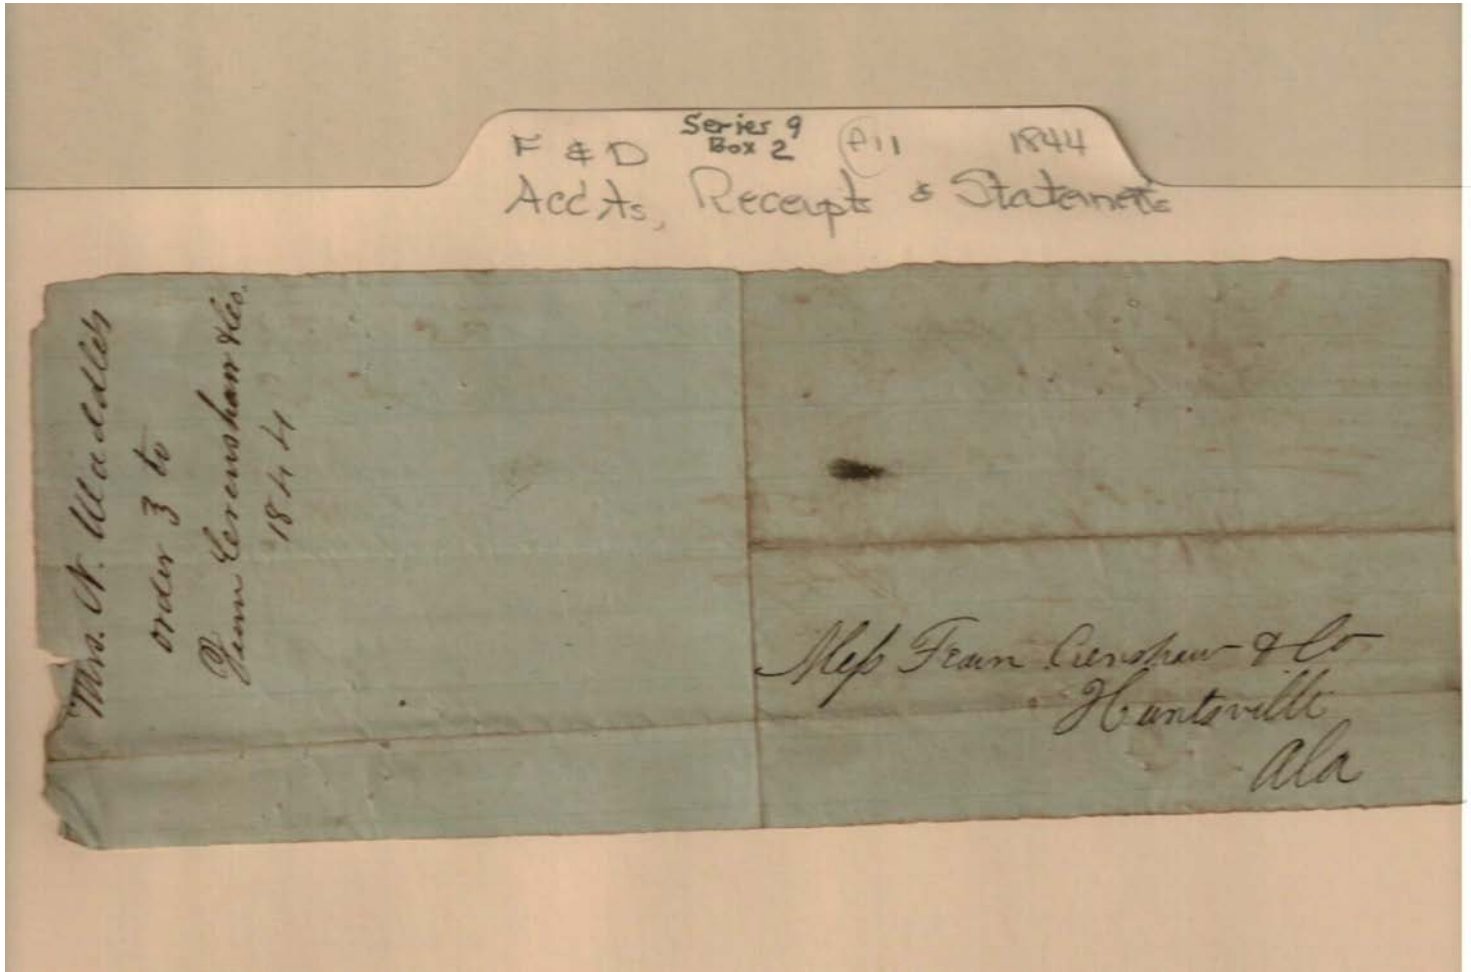 Series 9
Box 2
F & D
1844
Accts, Receipts & Statements
Mrs. N. Waddle's
order 3 to
Fearn Crenshaw & Co.
1844
Mess Fearn Crenshaw & Co
Huntsville
Ala